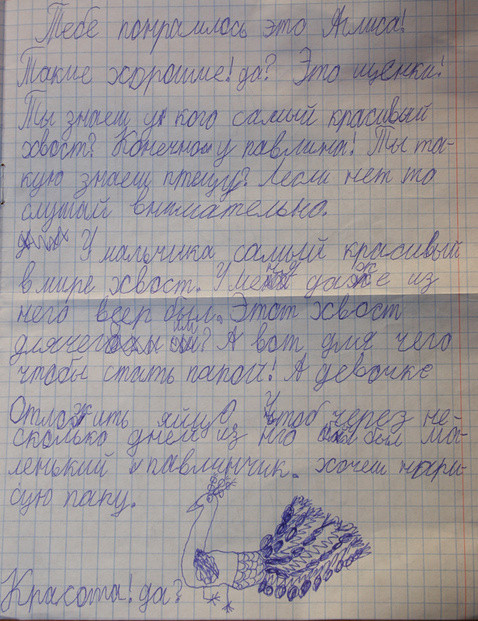 Тебе понравилось это Алиса!
Такие хорошие! да? Это щенки!
Ты знаеш у кого самый красивый
хвост? Конечно у павлина! Ты та-
кую знаеш птецу? Если нет то
слушай внимательно.
У мальчика самый красивый
в мире хвост. У меня даже из
него веер был. Этот хвост
для чего? А вот для чего
чтобы стать папой! А девочке
отложить яйцо чтоб через не-
сколько дней из него был ма-
ленький павлинчик. хочеш нари-
сую папу.
Красота! да?